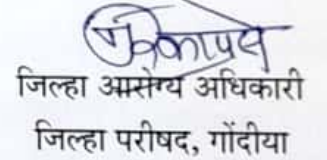 जिल्हा आरोग्य अधिकारी
जिल्हा परीषद, गोंदीया